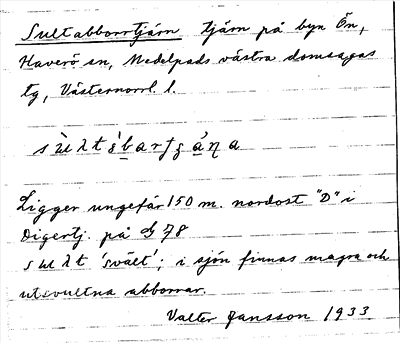 Sultabborrtjärn tjärn på byn Ön,
Haverö sn, Medelpads västra domsagas
tg, Västernorrl. l.
Ligger ungefär 150 m. nordost "D" i
Digertj. på G 78
'svält'; i sjön finnas magra och
utsvultna abborrar.
Valter Jansson 1933